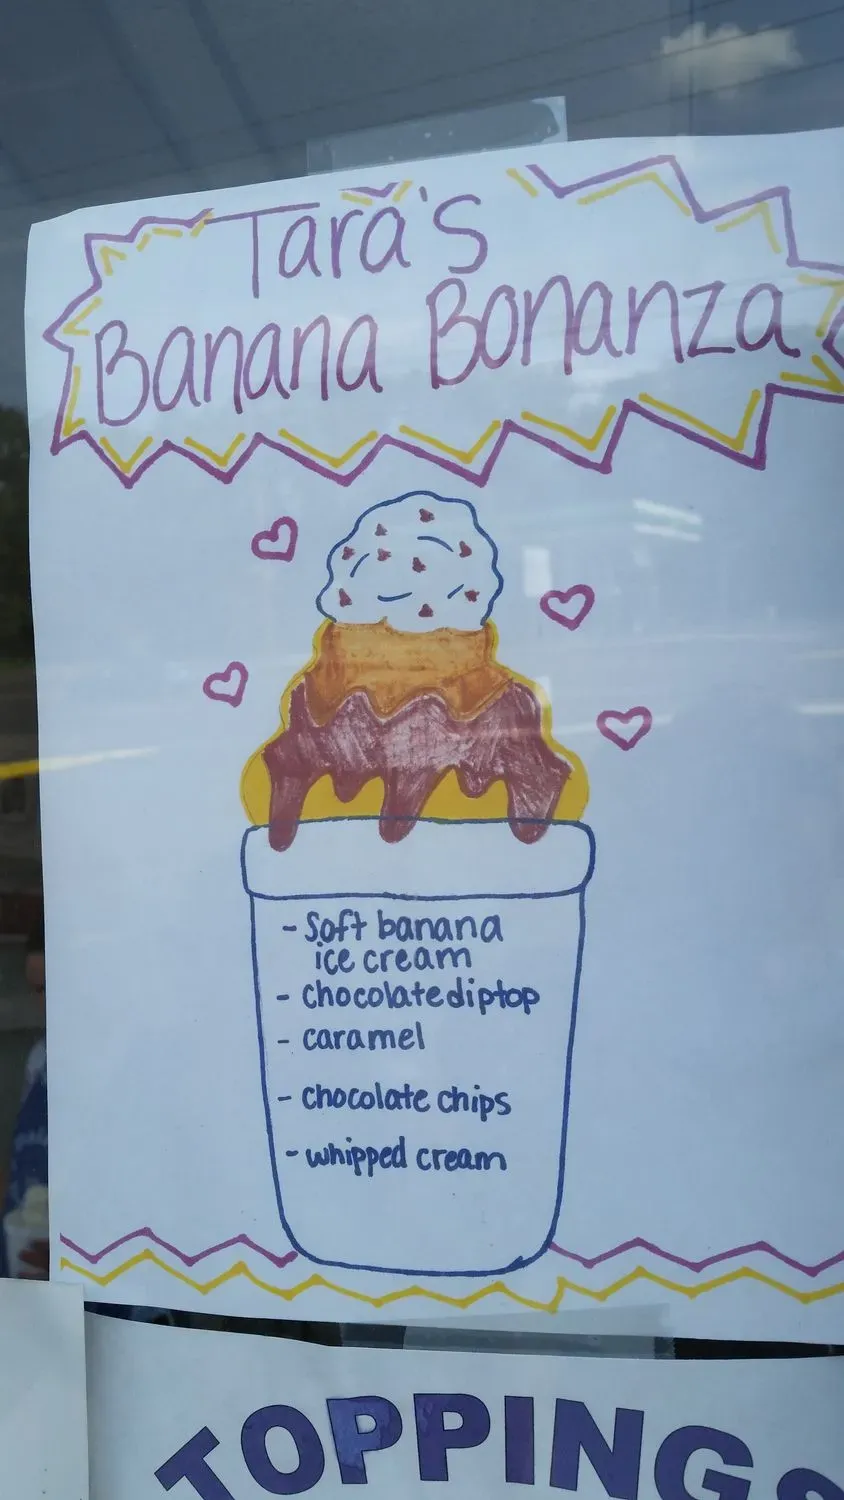 Tara's
Banana Bonanza
- Soft banana
ice cream
- chocolate diptop
- caramel
- chocolate chips
- whipped cream
TOPPINGS